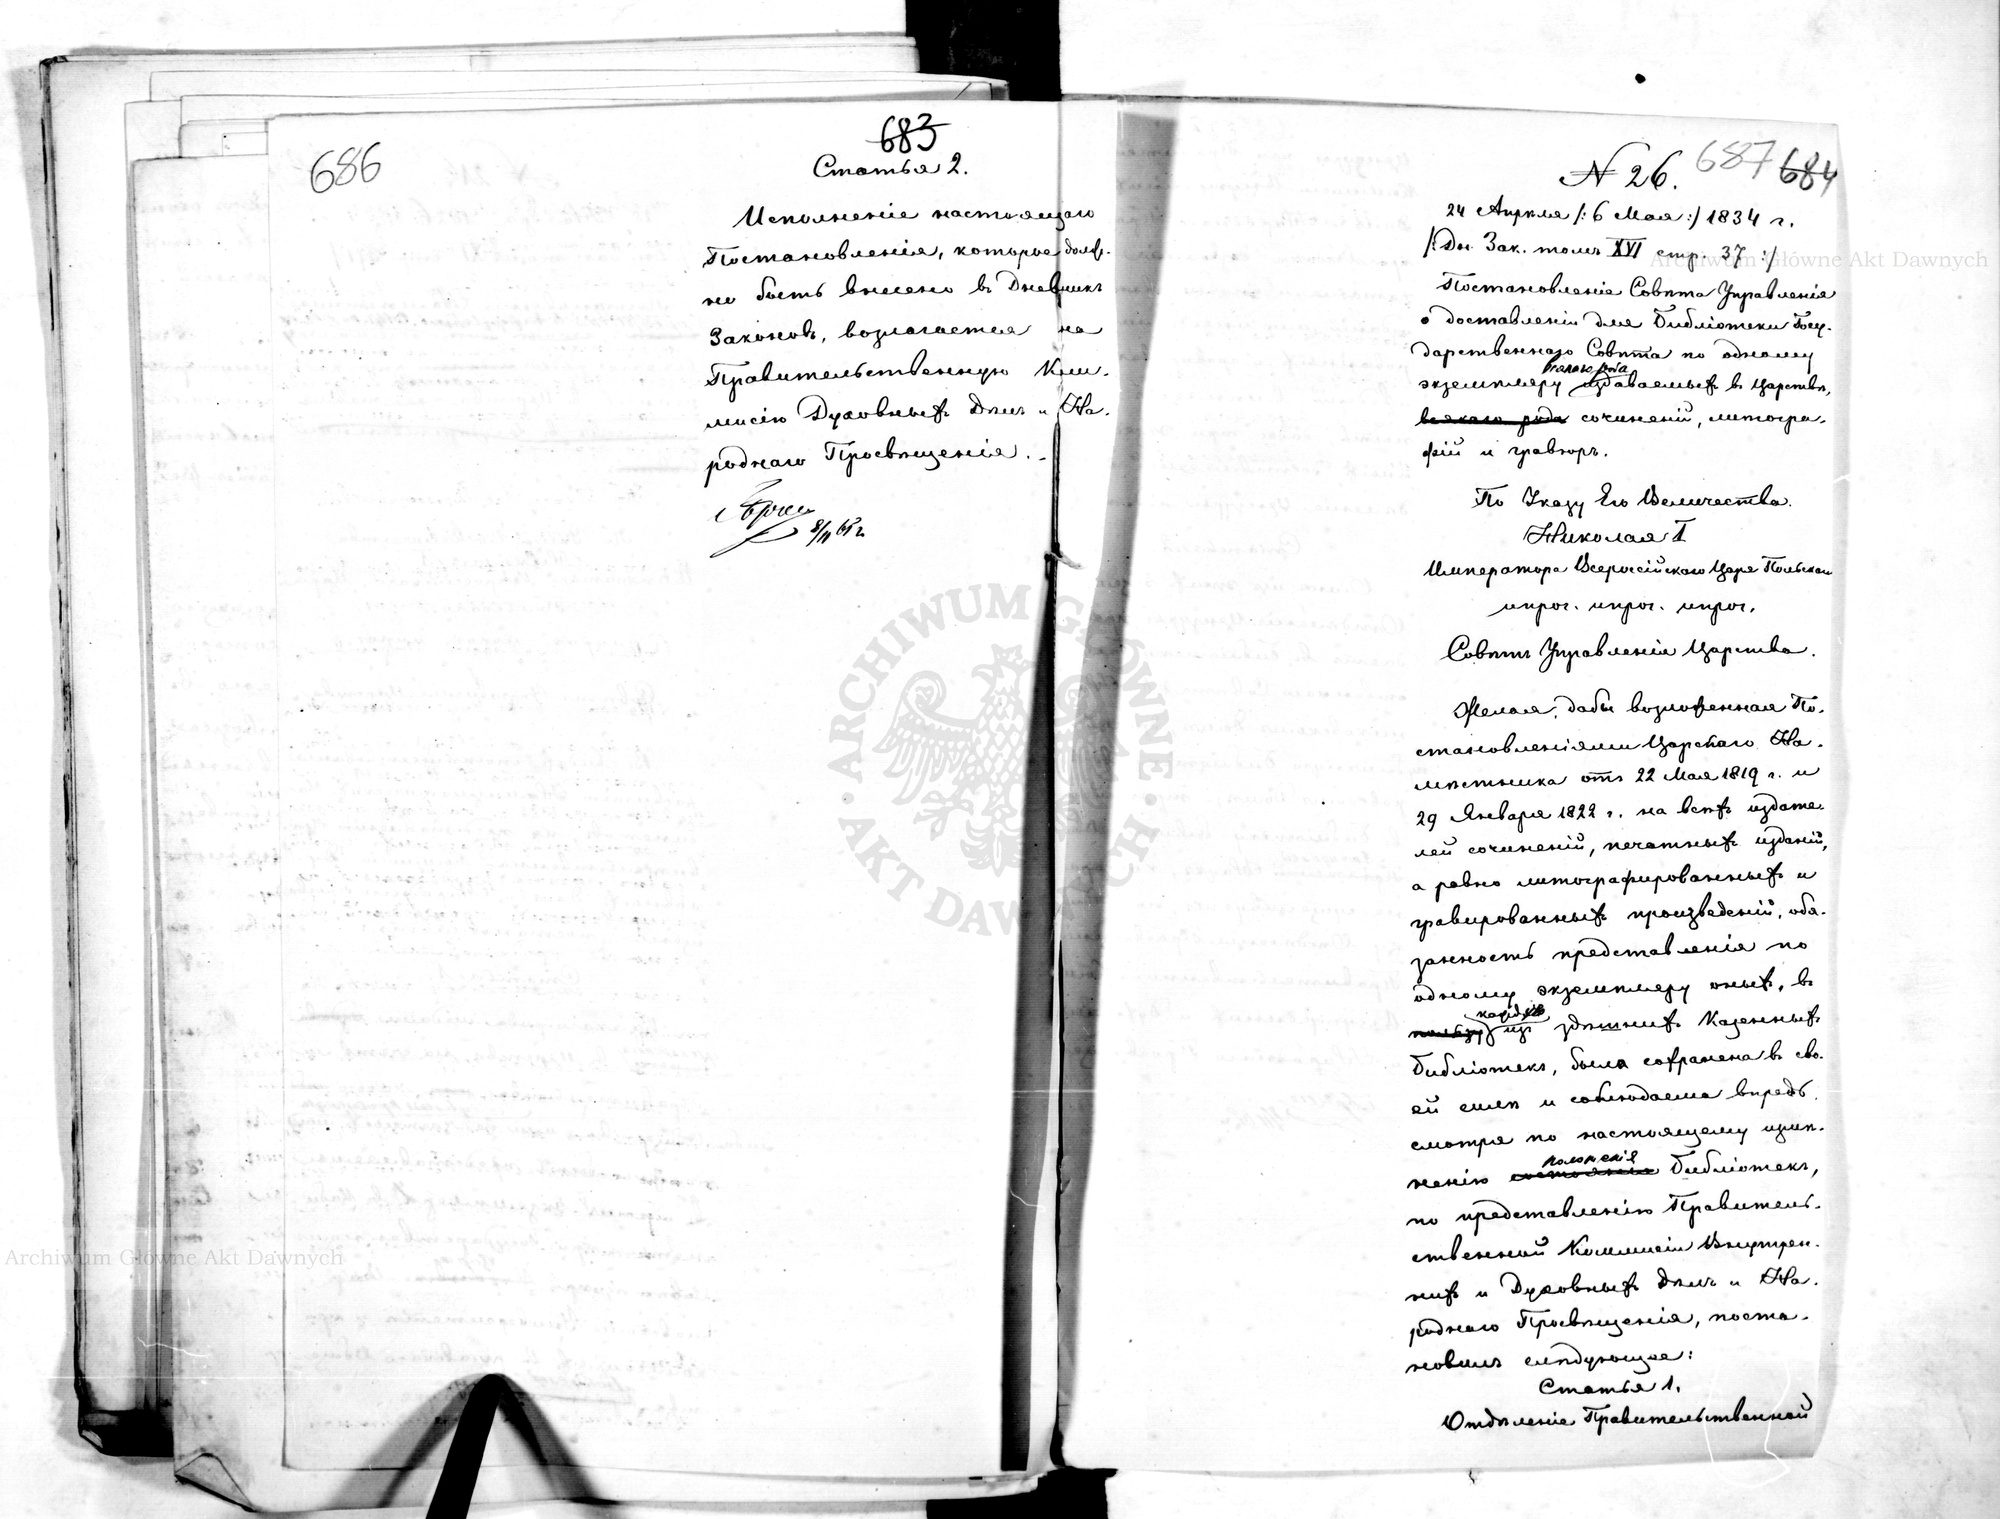 686
683
Статья 2.
Исполненіе настоящаго
Постановленія, которое долж-
но быть внесено въ Дневникъ
Законовъ, возлагается на
Правительственную Ком-
мисію Духовныхъ Дѣлъ и На-
роднаго Просвѣщенія.
8/II 65 г.
N 26. 687 684
24 Апрѣля /: 6 Мая :/ 1834 г.
/: Дн. Зак. томъ XVI стр. 37 :/
Постановленіе Совѣта Управленія
о доставленіи для Библіотеки Госу-
дарственнаго Совѣта по одному
экземпляру издаваемыхъ в Царствѣ,
всякаго рода сочиненій, литогра-
фій и гравюръ.
По Указу Его Величества.
Николая I
Императора Всероссійскаго Царя Польскаго
ипроч. ипроч. ипроч.
Совѣтъ Управленія Царства.
Желая, дабы возложенная По-
становленіями Царскаго На-
мѣстника отъ 22 Мая 1819 г. и
29 Января 1822 г. на всѣхъ издате-
лей сочиненій, печатныхъ изданій,
а равно литографированныхъ и
гравированныхъ произведеній, обя-
занность представленія по
одному экземпляру оныхъ, въ
пользу изъ здѣшнихъ Казенныхъ
Библіотекъ, была сохранена въ сво-
ей силѣ и соблюдаема впредь
смотря по настоящему измѣ-
положенія
ненію состоянія Библіотекъ,
по представленію Правитель-
ственной Коммисіи Внутрен-
нихъ и Духовныхъ Дѣлъ и На-
роднаго Просвѣщенія, поста-
новилъ слѣдующее:
Статья 1.
Отдѣленіе Правительственной
Archiwum Główne Akt Dawnych
Archiwum Główne Akt Dawnych
ARCHIWUM GŁÓWNE
AKT DAWNYCH